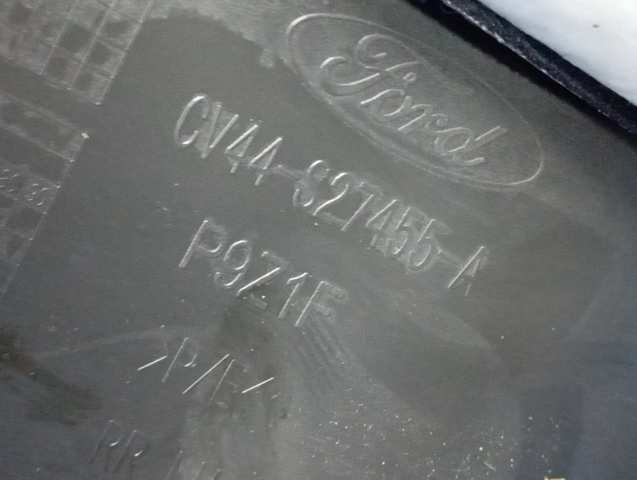 Ford
CV44-S27455-A
P9Z1F
>P/E<
RR